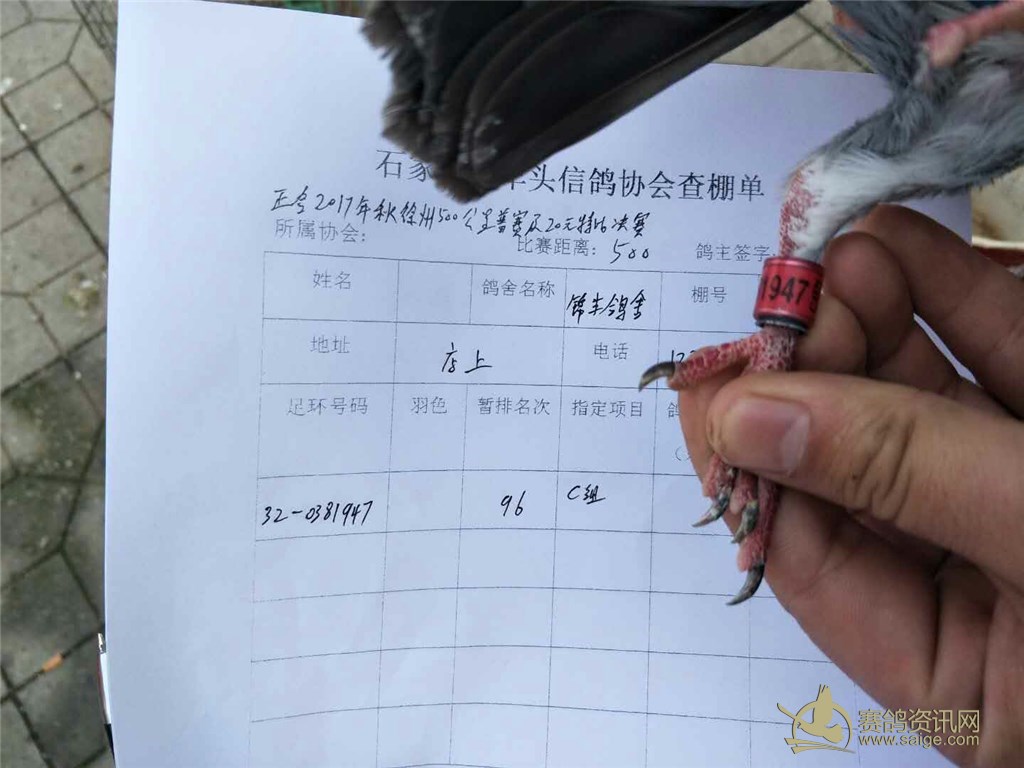 石家 头信鸽协会查棚单
正令2017年秋徐州500公里普赛及20元特比决赛
所属协会: 比赛距离: 500 鸽主签字:
姓名 鸽舍名称 锦丰鸽舍 棚号
地址 店上 电话
足环号码 羽色 暂排名次 指定项目 鸽
32-0381947 96 C组
1947
赛鸽资讯网
www.saige.com